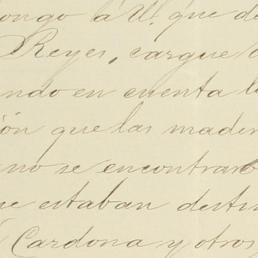 ongo á U. que d
Reyes, cargue
ndo en cuenta l
ón que las mader
no se encontraro
e estaban desti
Cardona y otros